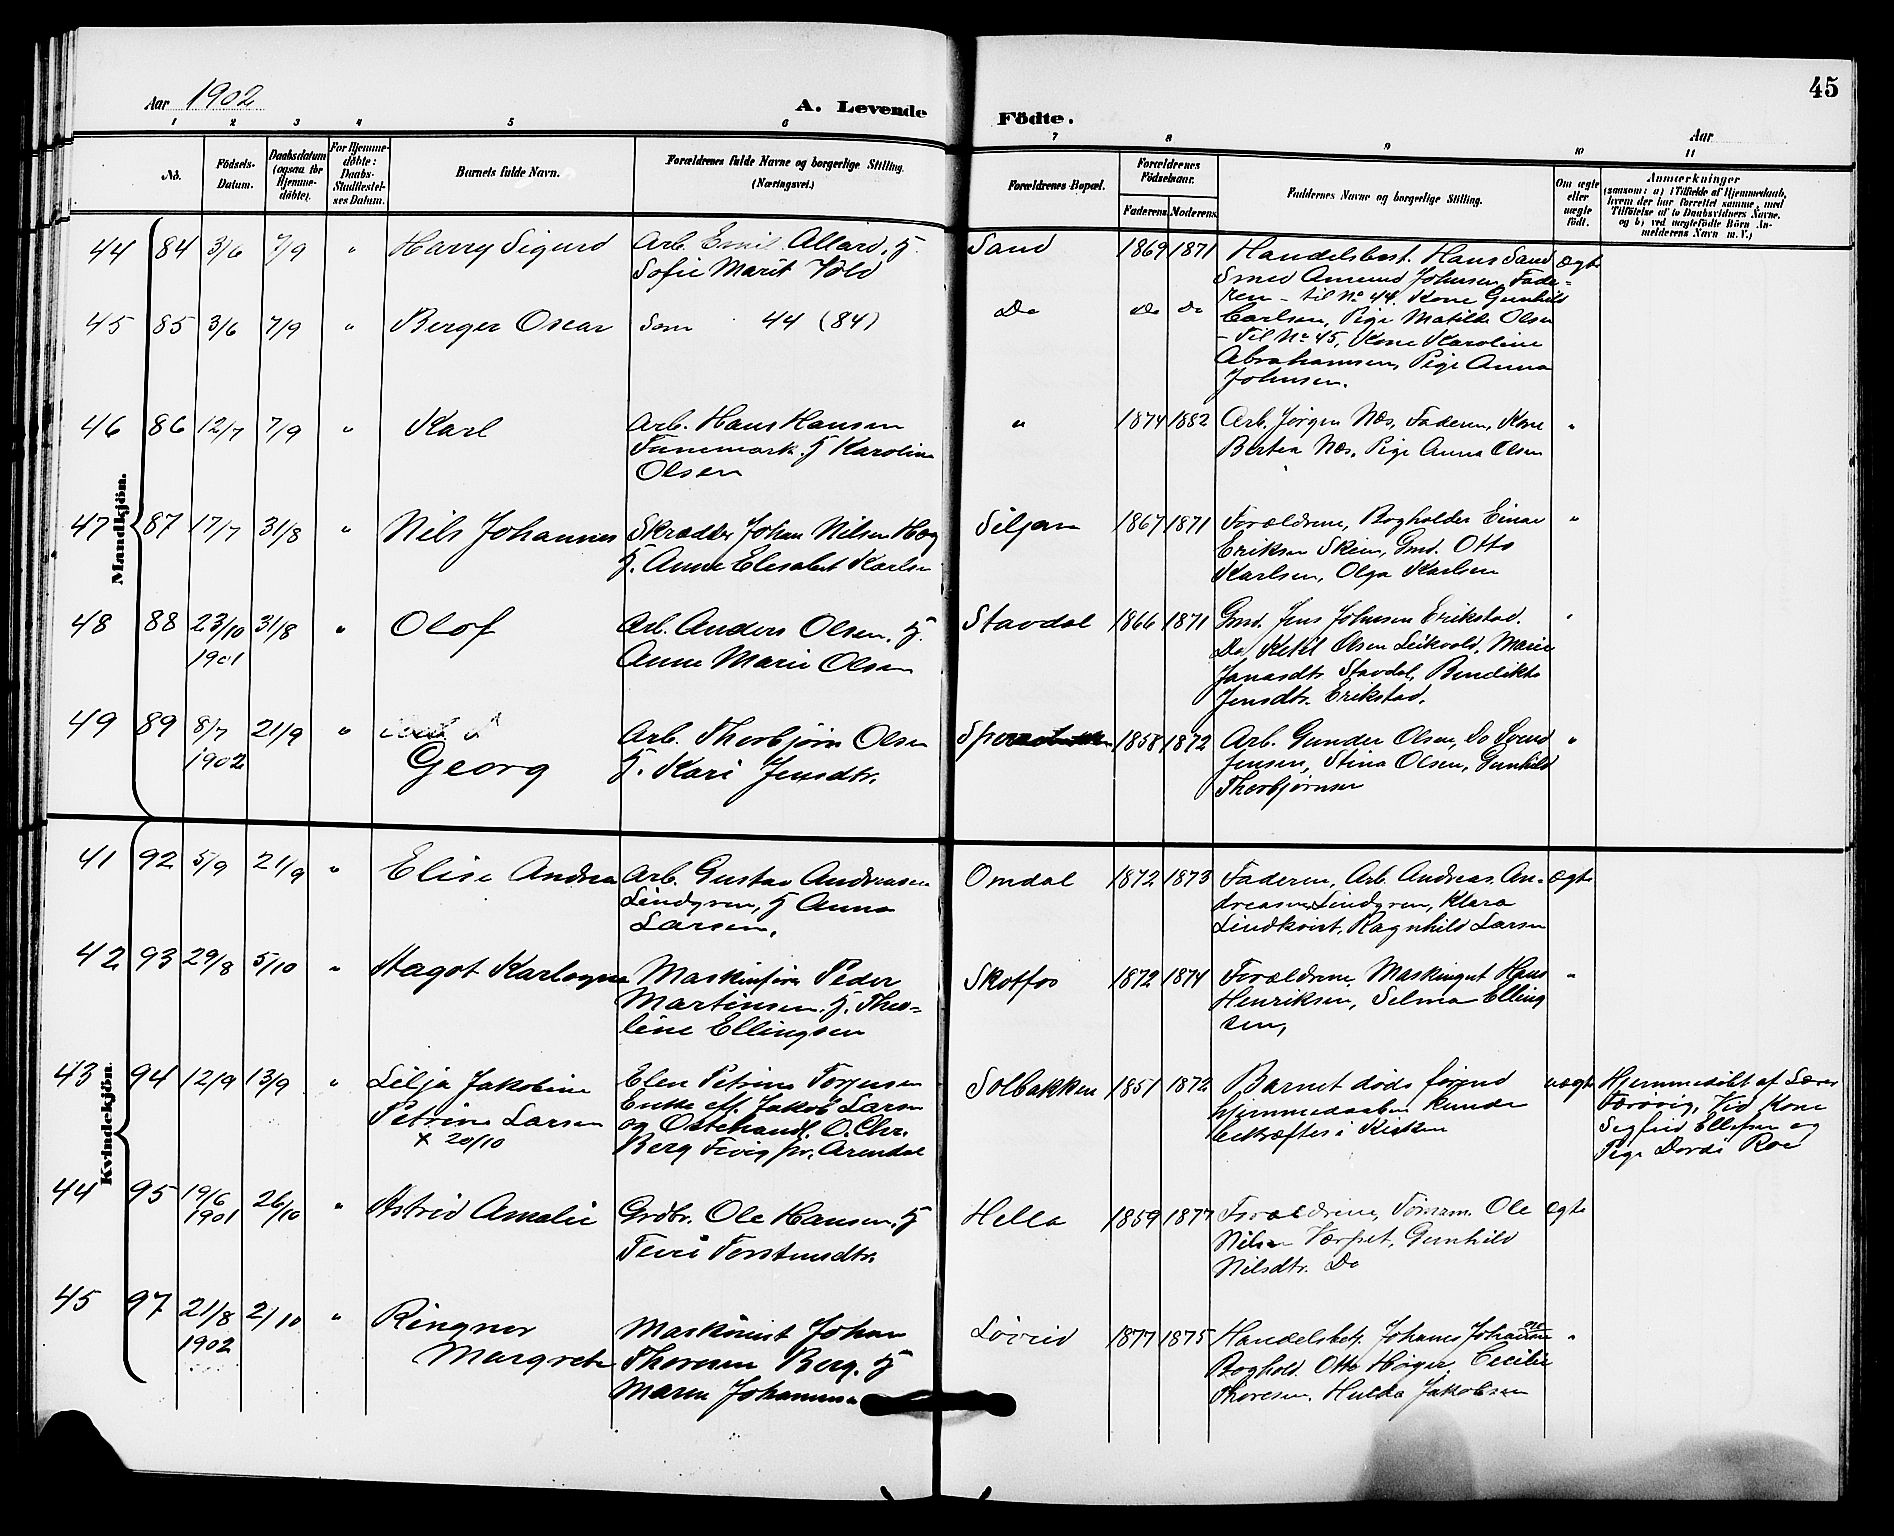 45
Aar 1902
A. Levende Födte.
Aar
1 2 3 4 5 6 7 8 9 10 11
No.
Födsels-Datum.
Daabsdatum (ogsaa for Hjemme-döbte).
For Hjemme-döbte: Daabs-Stadfæstel-ses Datum.
Barnets fulde Navn.
Forældrenes fulde Navne og borgerlige Stilling. (Næringsvei.)
Forældrenes Bopæl.
Forældrenes Födselsaar.
Faderens. Moderens.
Faddernes Navne og borgerlige Stilling.
Om ægte eller uægte födt.
Anmærkninger
(saasom: a) i Tilfælde af Hjemmedaab,
hvem der har forrettet samme, med
Tilföielse af to Daabsvidners Navne,
og b) ved uægtefödte Börn An-
melderens Navn m. V.)
Mandkjön.
44 84 3/6 7/9 " Harry Sigurd
Arb. Emil Allard. H.
Sofie Marit Vold
Sand 1869 1871
Handelsbest. Hans Sand ægte
Smed Amund Johnsen, Fade-
ren - til No 44. Kone Gunhild
Carlsen, Pige Matilde Olsen
- Til No 45, Kone Karoline
Abrahamsen, Pige Anna
Johnsen.
45 85 3/6 7/9 " Berger Oscar
Som 44 (84)
Do Do Do
46 86 12/7 7/9 " Karl
Arb. Hans Hansen
H Karoline
Olsen
" 1874 1882
Arb. Jørgen Næs, Faderen, Kone "
Bertea Næs, Pige Anna Olsen
47 87 17/7 31/8 " Nils Johannes
Skrædder Johan Nilsen
H. Anne Elisabet Karlsen
Siljan 1867 1871
Forældrene, Bogholder Einar "
Eriksen Skien, Gmd. Otto
Karlsen, Olga Karlsen
48 88 23/10 31/8 " Olof
1901
Arb. Anders Olsen. H.
Anne Marie Olsen
Stavdal 1866 1871
Gmd. Jens Johnsen Erikstad. "
Do Ketil Olsen Leikvold, Marie
Jonasdtr Stavdal, Bendikte
Jensdtr. Erikstad.
49 89 8/7 21/9 "
1902
Georg
Arb. Thorbjørn Olsen
H. Kari Jensdtr.
1858 1872
Arb. Gunder Olsen, Do Svend "
Jensen, Stina Olsen, Gunhild
Thorbjørnsen
Kvindekjön.
41 92 5/9 21/9 " Elise Andrea
Arb. Gustav Andreasen
Lindgren, H Anna
Larsen.
Omdal 1872 1873
Faderen, Arb. Andreas An- ægte
dreasen Lindgren, Klara
Lindkvist, Ragnhild Larsen
42 93 29/8 5/10 " Aagot
Maskinfører Peder
Martinsen. H. Theo-
line Ellingsen
Skotfos 1872 1874
Forældrene, Hans "
Henriksen, Selma Elling
sen,
43 94 12/9 13/9 " Lilja Jakobine
Petrine Larsen
x 20/10
Elen Petrine Torjusen
Enke eft. Jakob Larsen
og Ostehandl. O. Chr.
Berg Fevig pr. Arendal
Solbakken 1851 1872
Barnet døde førend uægte
hjemmedaaben kunde
bekræftes i Kirken
Hjemmedøbt af Lærer
Værvig, Vid Kone
Sigfrid Ellefsen og
Pige Dordi Roe
44 95 19/6 26/10 " Astrid Amalie
1901
Grdbr. Ole Hansen. H
Torstensdtr.
Hella 1859 1877
Forældrene, Tømrm. Ole ægte
Nilsen Værpet, Gunhild
Nilsdtr. Do
45 97 21/8 2/10 " Ringnor
1902
Margrete
Maskinist Johan
Thoresen Berg. H
Maren Johannesen
Løveid 1877 1875
Handelsbetj. Johannes Johannesen "
Boghold. Otto Høyer, Cecilie
Thoresen, Hulda Jakobsen